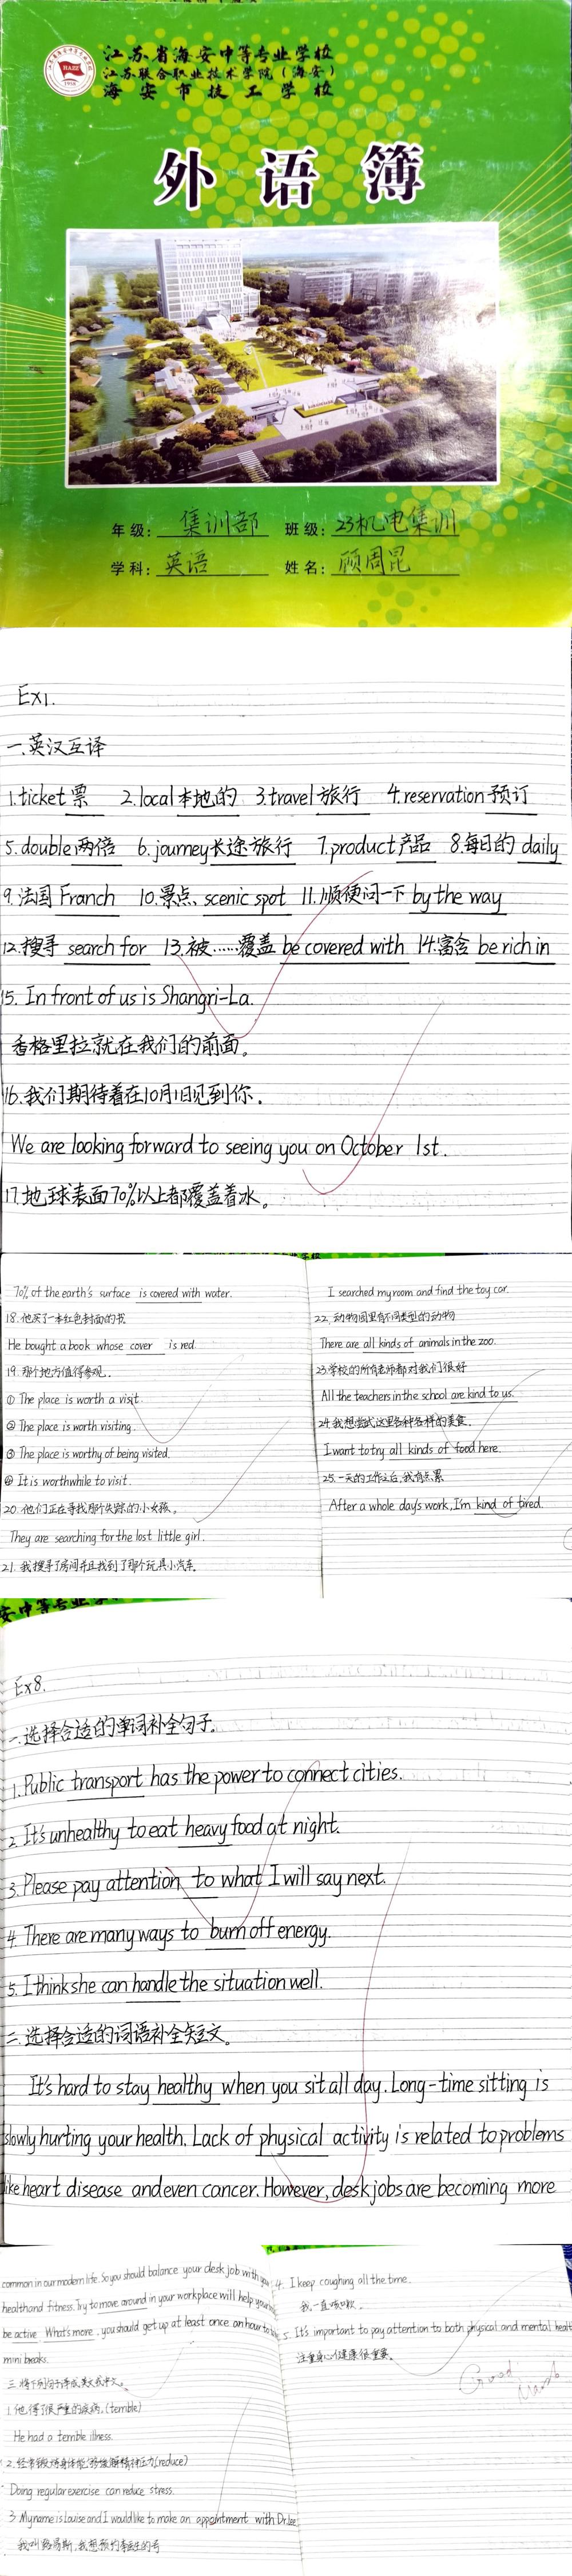 江苏省海安中等专业学校
江苏联合职业技术学院（海安）
海安市技工学校
HAZZ
外语簿
年级：集训部 班级：23机电集训
学科：英语 姓名：顾周昆
Ex1.
一.英汉互译
1.ticket 票 2.local 本地的 3.travel 旅行 4.reservation 预订
5.double 两倍 6.journey 长途旅行 7.product 产品 8.每日的 daily
9.法国 Franch 10.景点 scenic spot 11.顺便问一下 by the way
12.搜寻 search for 13.被……覆盖 be covered with 14.富含 be rich in
15. In front of us is Shangri-La.
香格里拉就在我们的前面。
16.我们期待着在10月1日见到你.
We are looking forward to seeing you on October 1st.
17.地球表面70%以上都覆盖着水。
70% of the earth's surface is covered with water.
18.他买了一本红色封面的书
He bought a book whose cover is red.
19.那个地方值得参观.
① The place is worth a visit.
② The place is worth visiting.
③ The place is worthy of being visited.
④ It is worthwhile to visit.
20.他们正在寻找那个失踪的小女孩.
They are searching for the lost little girl.
21.我搜寻了房间并且找到了那个玩具小汽车.
I searched my room and find the toy car.
22.动物园里有不同类型的动物
There are all kinds of animals in the zoo.
23.学校的所有老师都对我们很好
All the teachers in the school are kind to us.
24.我想尝试这里各种各样的美食.
I want to try all kinds of food here.
25.一天的工作之后,我有点累
After a whole day's work, I'm kind of tired.
安中等专业学
Ex8.
一.选择合适的单词补全句子。
1. Public transport has the power to connect cities.
2. It's unhealthy to eat heavy food at night.
3. Please pay attention to what I will say next.
4. There are many ways to burn off energy.
5. I think she can handle the situation well.
二.选择合适的词语补全短文。
It's hard to stay healthy when you sit all day. Long-time sitting is
slowly hurting your health. Lack of physical activity is related to problems
like heart disease and even cancer. However, desk jobs are becoming more
common in our modern life. So you should balance your desk job with
health and fitness. Try to move around in your workplace will help
be active. What's more, you should get up at least once an hour to
mini breaks.
三.将下列句子译成英文或中文。
1.他得了很严重的疾病. (terrible)
He had a terrible illness.
2.经常锻炼身体能够缓解精神压力(reduce)
Doing regular exercise can reduce stress.
3. My name is Louise and I would like to make an appointment with Dr. Lee
我叫路易斯,我想预约李医生的号
4. I keep coughing all the time.
我一直咳嗽.
5. It's important to pay attention to both physical and mental
注重身心健康很重要.
Good